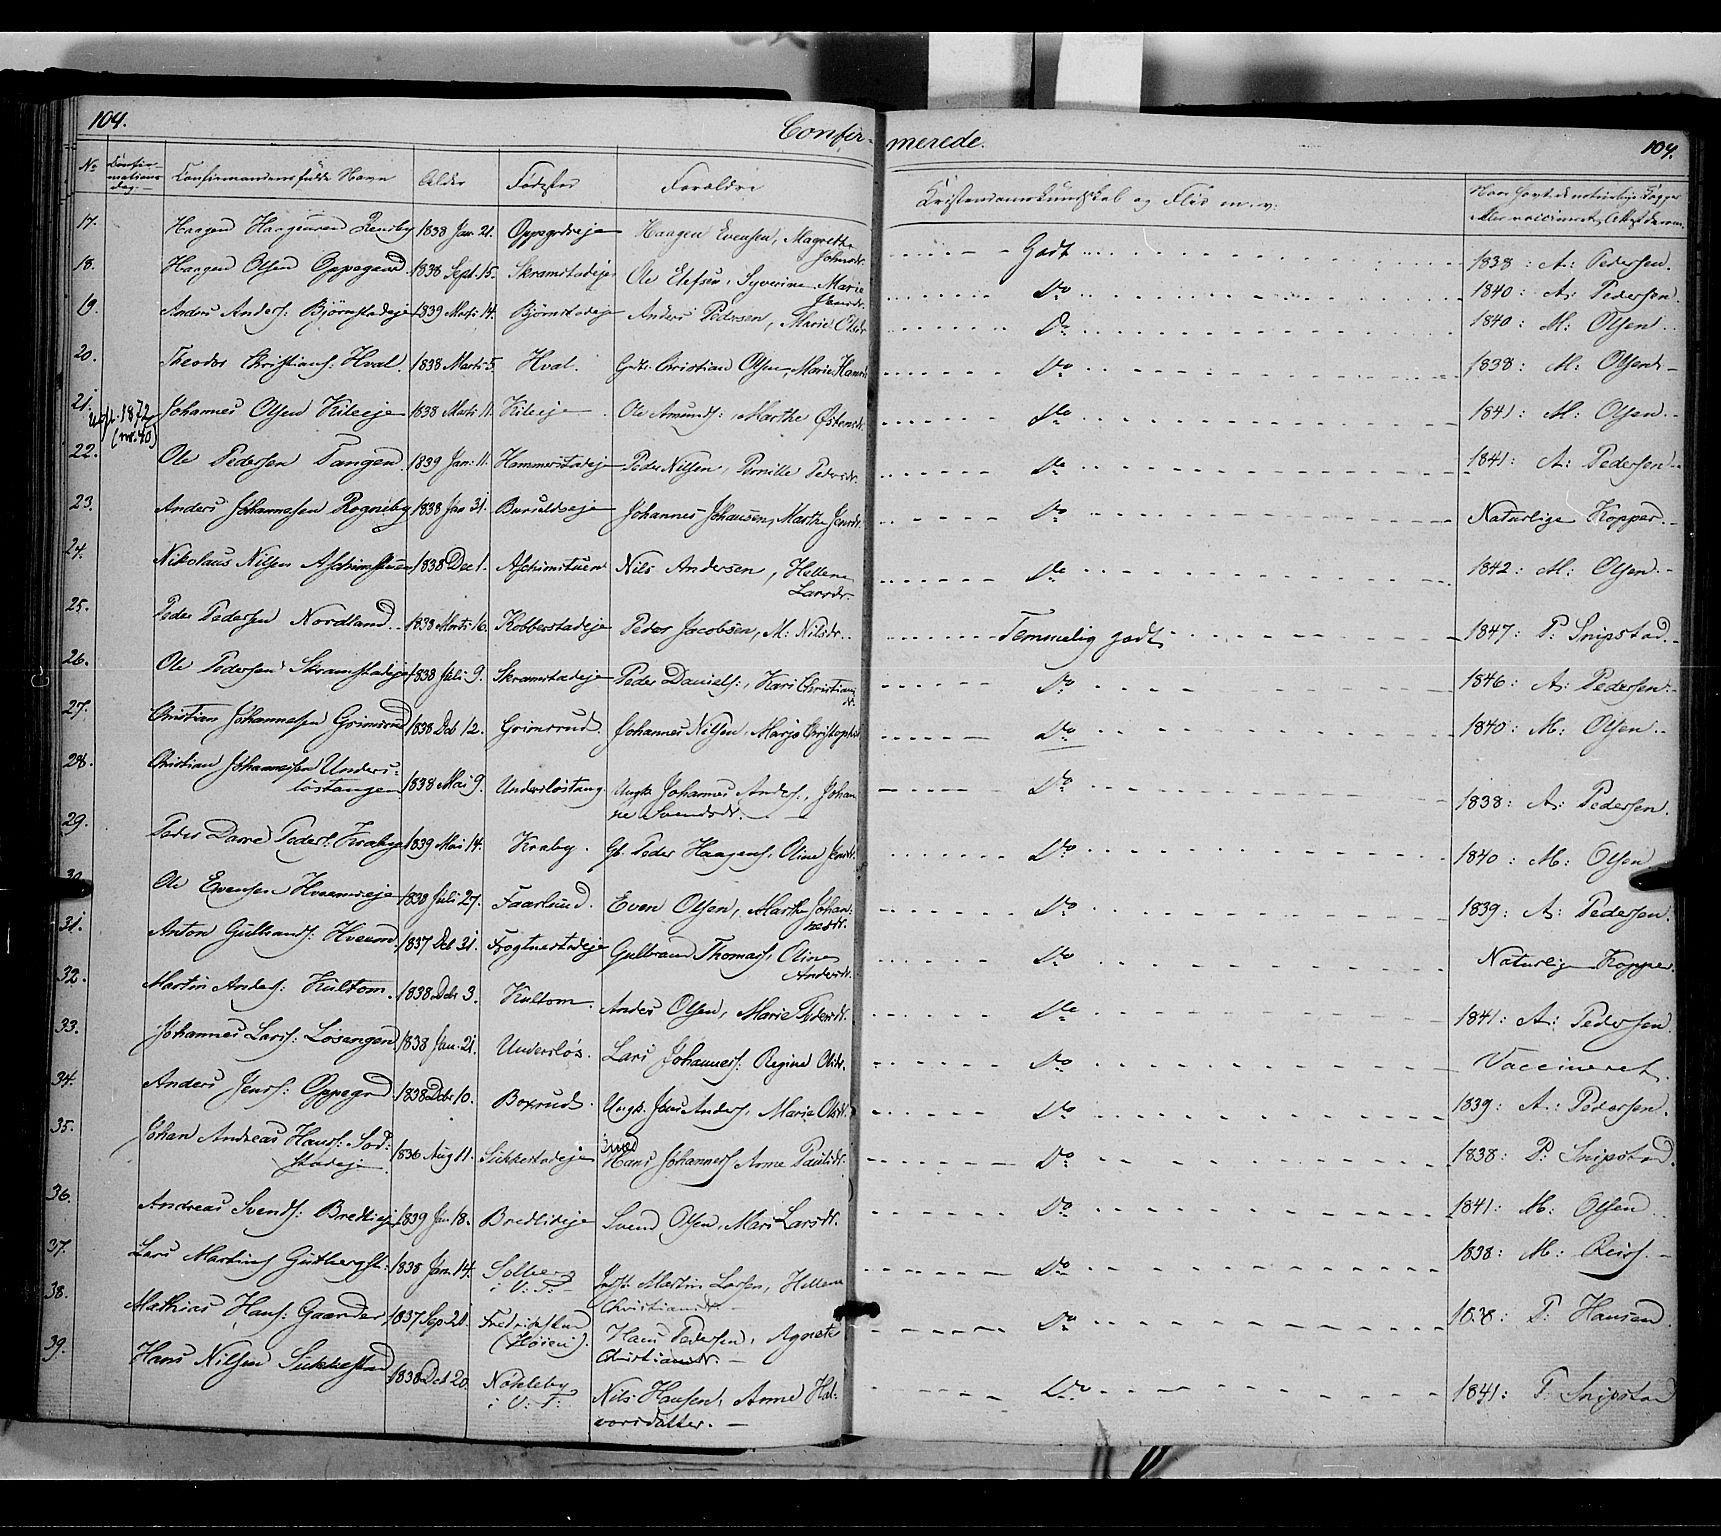 104.
Confir-
merede.
104.
No Confirmations dag. Confirmandens fulde Navn Alder Fødested Forældre Kristendomskundskab og Flid m. v. Naar havt de naturlige Kopper
eller vaccineret, Attest derom.
17. Haagen Haagensen 1838 Jan. 21. Oppegrdseje Haagen Evensen, Magrethe Johnsdr. Godt 1838: A: Pedersen.
18. Haagen Olsen Oppegaard 1838 Sept. 15. Skramstadeje Ole Elefsen, Syverine Marie Jensdr. Do 1840: A: Pedersen.
19. Anders Anders: Bjørnstadeje 1839 Marts 14. Bjørnstadeje Anders Pedersen, Marie Olsdr. Do 1840: M: Olsen
20. Theodor Christians: Hval. 1838 Marts 5. Hval. Christian Olsen, Marie Hansdr. Do 1838: M: Olsen
21. Johannes Olsen Kileeje 1838 Marts 11. Kileeje Ole Amunds:, Marthe Østensdr. Do 1841: M: Olsen
1872
(nr. 40)
22. Ole Pedersen Tangen 1839 Jan: 11. Hammerstadeje Peder Nilsen, Pernille Pedersdr. Do 1841: A: Pedersen
23. Anders Johannesen Rognêby 1838 Jan 31. Buruldseje Johannes Johansen, Marthe Jensdr. Do Naturlige Kopper.
24. Nikolaus Nilsen Aschimstuen 1838 Dec 1. Aschimstuen Nils Andersen, Hellene
Larsdr. Do 1842: M: Olsen
25. Peder Pedersen Nordland 1838 Marts 16. Kobberstadeje Peder Jacobsen, M: Nilsdr. Temmelig godt 1847: P: Snipstad.
26. Ole Pedersen Skramstadeje 1838 Juli 9. Skramstadeje Peder Daniels:, Kari Christians
dr. Do 1846: A: Pedersen.
27. Christian Johannesen Grimsrud 1838 Dec 12. Grimsrud. Johannes Nilsen, Marja Christophd Do 1840: M: Olsen
28. Christian Johannesen Unders-
løstangen 1838 Mai 9. Undersløstang Ungk. Johannes Anders:, Johan
ne Svendsdr. Do 1838: A: Pedersen.
29. Peder Peders: Kraby 1839 Mai 14. Kraby. Gb. Peder Haagens, Oline Jensdr. Do 1840: M: Olsen
30. Ole Evensen Hveemseje 1838 Juli 27. Faarlund. Even Olsen, Marthe Johan-
nesdr. Do 1839: A: Pedersen.
31. Anton Gulbrands: Hveem. 1837 Dec 31. Frogtnerstadeje Gulbrand Thomass, Oline
Andersdr. Do Naturlige Kopper.
32. Martin Anders: Kultom. 1838 Debr 3. Kultom. Anders Olsen, Marie Pedersdr. Do 1841: A: Pedersen
33. Johannes Lars: Løsengen 1838 Jan. 21. Undersløs. Lars Johanness: Regine Olsdr. Do Vaccineret.
34. Anders Jens: Oppegrd 1838 Debr 10. Boxrud. Ungk. Jens Anders, Marie Olsdr. Do 1839: A: Pedersen.
35. Johan Andreas Hans: Sod-
stadeje 1836 Aug 11. Sukkestadeje Hans Johanness Anne Paulsdr. Do 1838: P: Snipstad.
36. Andreas Svends: Bredlieje 1839 Jan 18. Bredlideje Svend Olsen, Mari Larsdr. Do 1841: M: Olsen
37. Lars Martins 1838 Jan 14. Solberg
i V: T: Martin Larsen, Hellene
Christiansdr. Do 1838: M:
38. Mathias Hans: Gaarder 1837 Sep 21. Fredrikstun
(Høien). Hans Pedersen, Agnete
Christiansdr. Do 1838: P: Hansen
39. Hans Nilsen Sukkestad 1838 Oct 20. Nøkleby
i V: T: Nils Hansen, Anne Hal-
vorsdatter. Do 1841: P: Snipstad